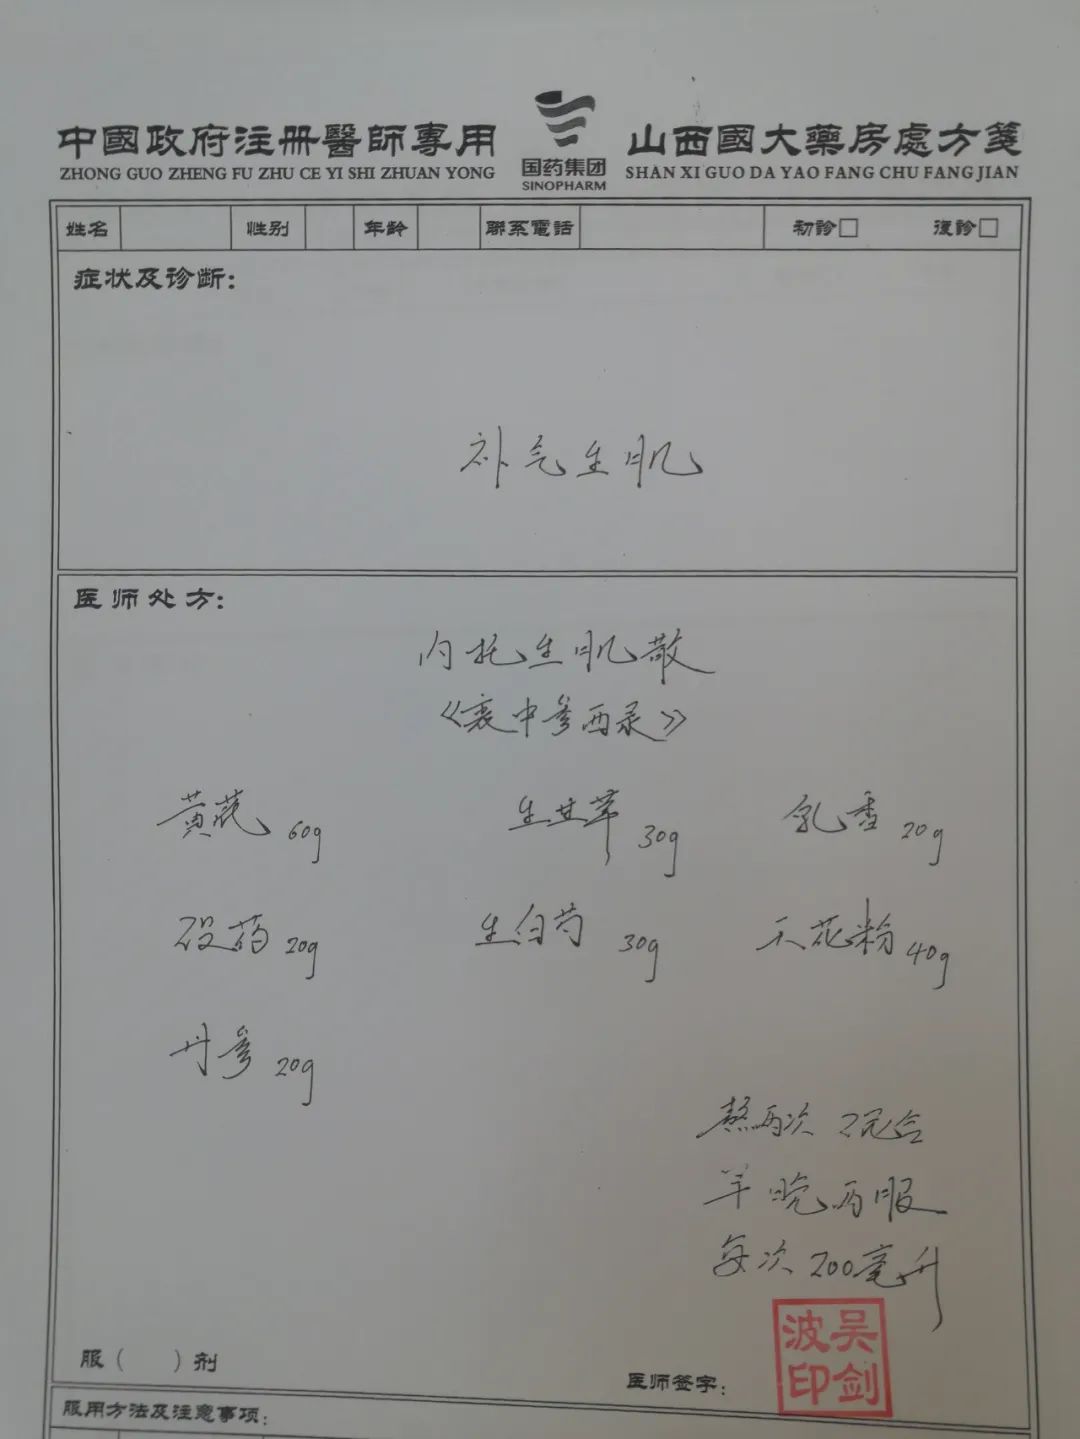 中國政府注册醫師專用
ZHONG GUO ZHENG FU ZHU CE YI SHI ZHUAN YONG
国药集团
SINOPHARM
山西國大藥房處方箋
SHAN XI GUO DA YAO FANG CHU FANG JIAN
姓名 性别 年龄 聯系電話 初診□ 復診□
症状及诊断:
补气生肌
医师处方:
内托生肌散
《衷中参西录》
黄芪 60g 生甘草 30g 乳香 20g
没药 20g 生白芍 30g 天花粉 40g
丹参 20g
熬两次 混合
早晚两服
每次200毫升
服( )剂
医师签字:
吴剑波印
服用方法及注意事项: